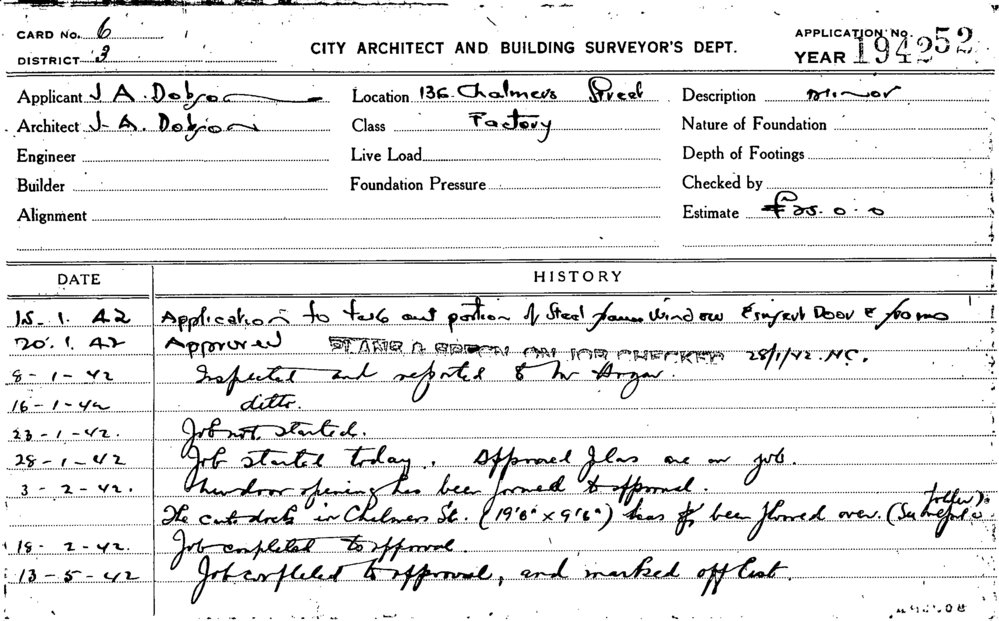 CARD No. 6
DISTRICT 3
CITY ARCHITECT AND BUILDING SURVEYOR'S DEPT.
APPLICATION No. 52
YEAR 1942
Applicant J A. Dobson
Location 136. Chalmers Street
Description minor
Architect J. A. Dobson
Class Factory
Nature of Foundation
Engineer
Live Load
Depth of Footings
Builder
Foundation Pressure
Checked by
Alignment
Estimate £25.0.0
DATE
HISTORY
15. 1. 42 Application to take out portion of Steel frame Window & insert Door & frame
20. 1. 42 Approved STAMP ON JOB CHECKED 28/1/42. H.C.
8-1-42 Inspected and reported to Mr Hogan.
16-1-42 ditto.
23-1-42. Job not started.
28-1-42 Job started today. Approved Plans are on job.
3-2-42. New door opening has been formed to approval.
The cart dock in Chalmers St. (19'6" x 9'6") has been floored over. (See
18-2-42. Job completed to approval.
13-5-42 Job completed to approval, and marked off list.